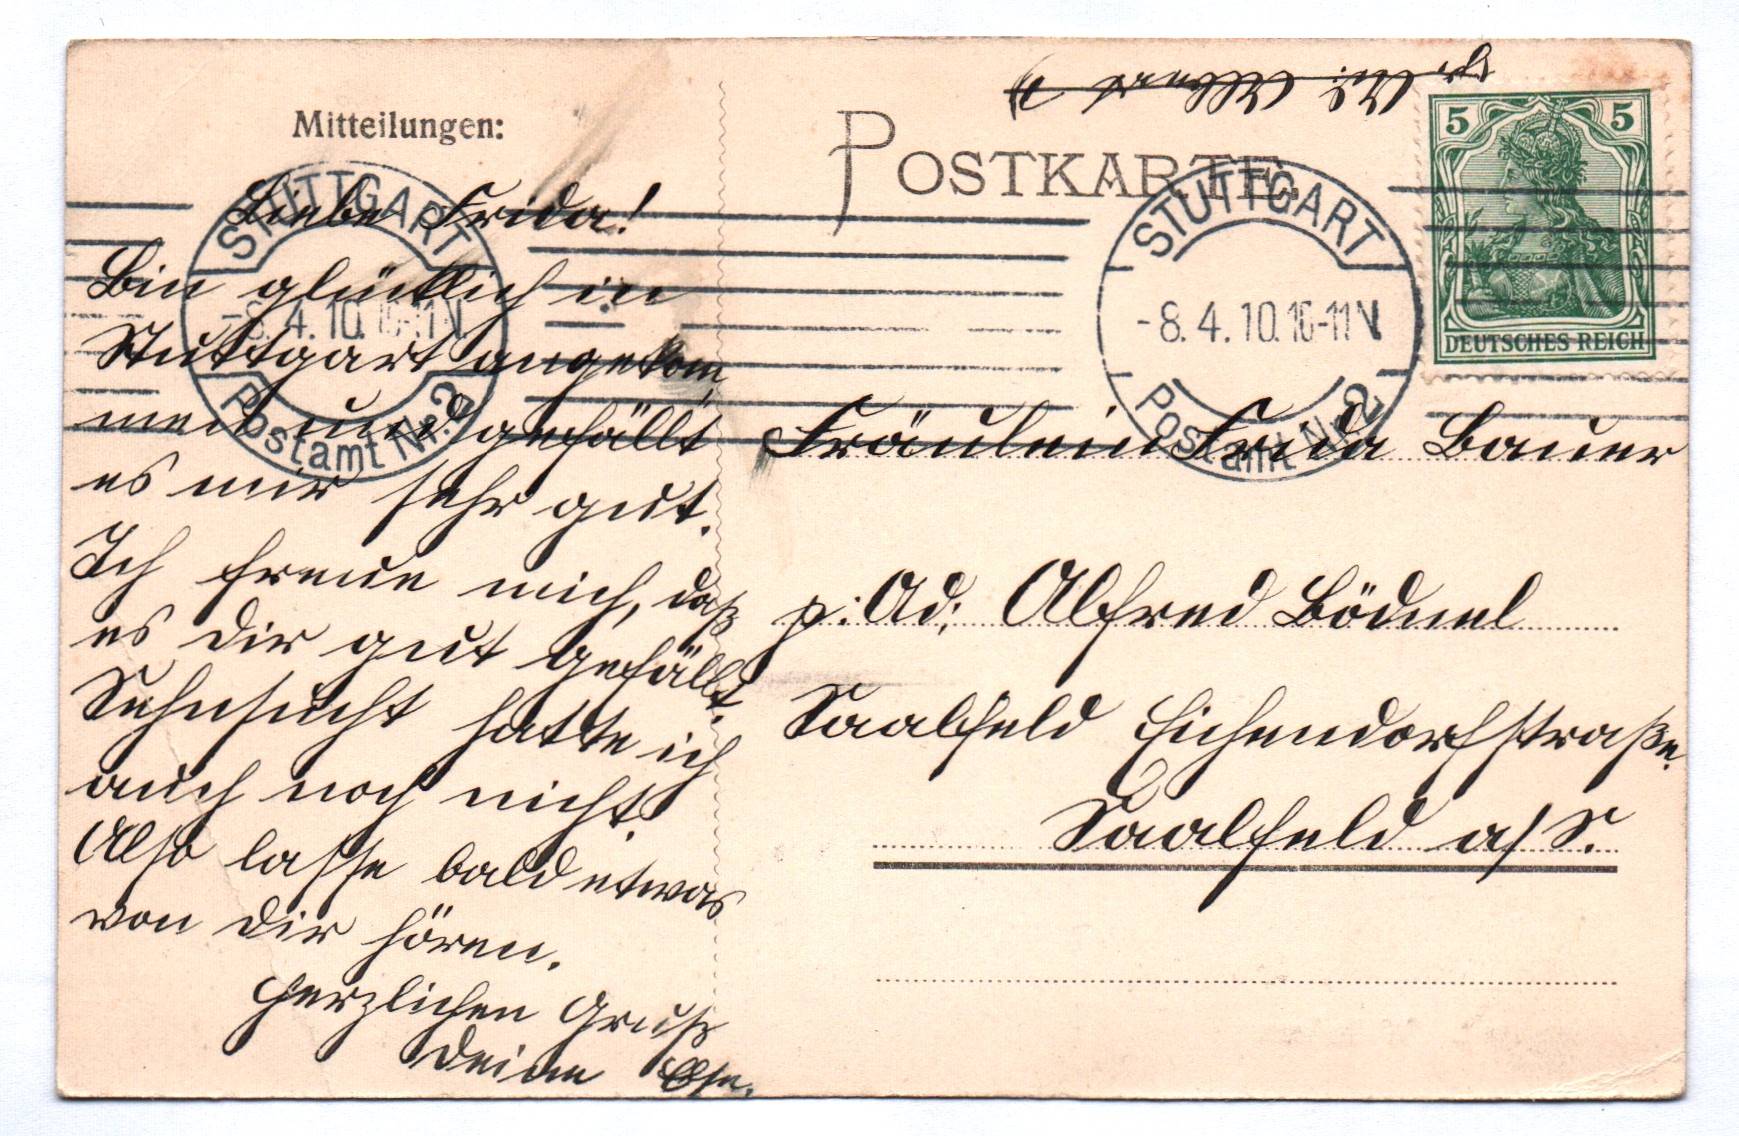 Mitteilungen:
Liebe Frida!
Bin glücklich in
Stuttgart angekom¬
men und gefällt
es mir sehr gut.
Ich freue mich, daß
es dir gut gefällt.
Sehnsucht hatte ich
auch noch nicht.
Also lasse bald etwas
von dir hören.
Herzlichen Gruß
Deine Else.
POSTKARTE
5 5
DEUTSCHES REICH
STUTTGART
-8.4.10.10-11N
Postamt Nr. 2
STUTTGART
-8.4.10.10-11N
Postamt Nr. 2
Fräulein Frida Bauer
p. Ad. Alfred Bödnel
Saalfeld Eichendorfstraße.
Saalfeld a/S.